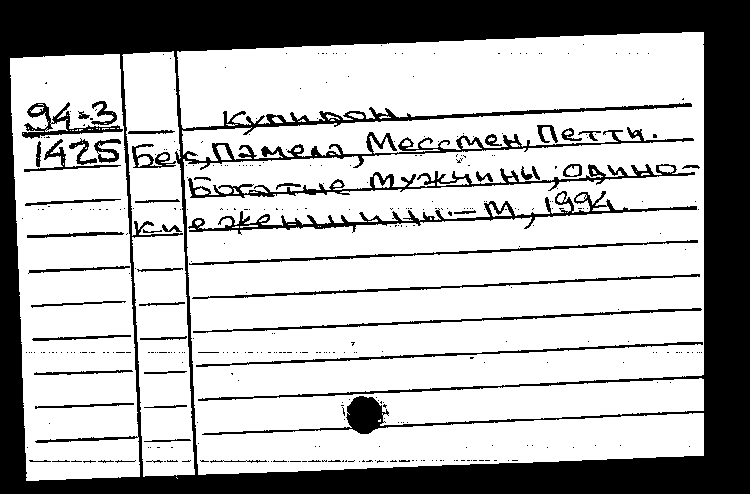 94-3 Купидон.
1425 Бек, Памела, Мессмен, Петти.
Богатые мужчины, одино-
кие женщины. - М., 1994.